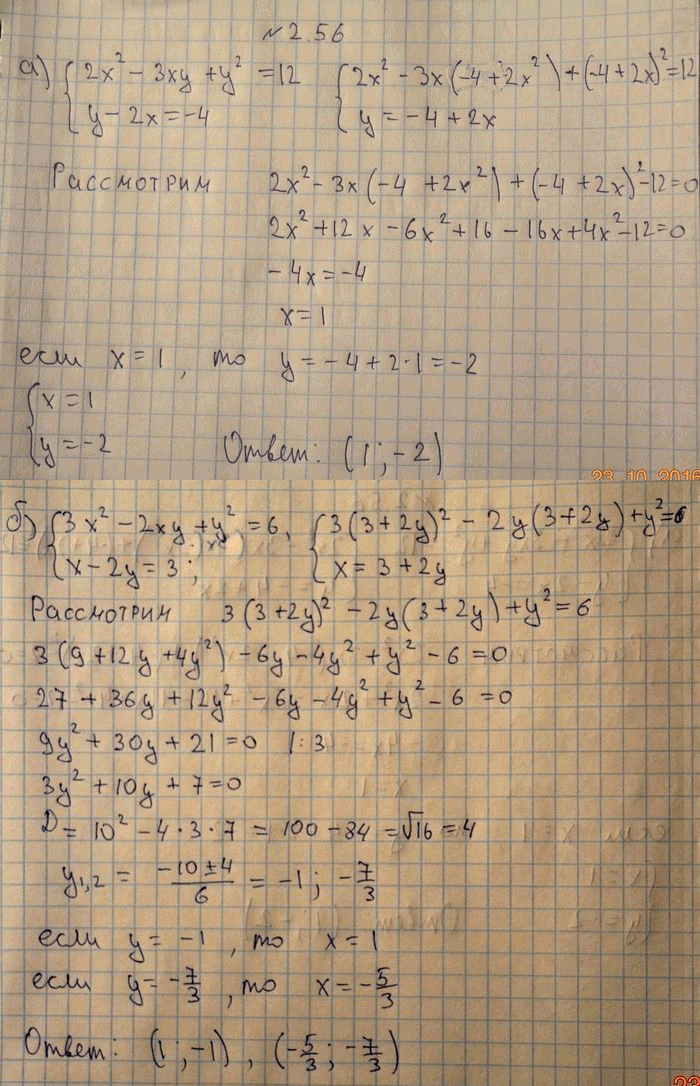 № 2.56
а) { 2x² - 3xy + y² = 12 { 2x² - 3x(-4 + 2x²) + (-4 + 2x)² = 12
y - 2x = -4 y = -4 + 2x
Рассмотрим 2x² - 3x(-4 + 2x²) + (-4 + 2x)² - 12 = 0
2x² + 12x - 6x² + 16 - 16x + 4x² - 12 = 0
-4x = -4
x = 1
если x = 1, то y = -4 + 2·1 = -2
{ x = 1
y = -2 Ответ: (1; -2)
23 10 2016
б) { 3x² - 2xy + y² = 6, { 3(3 + 2y)² - 2y(3 + 2y) + y² = 6
x - 2y = 3; x = 3 + 2y
Рассмотрим 3(3 + 2y)² - 2y(3 + 2y) + y² = 6
3(9 + 12y + 4y²) - 6y - 4y² + y² - 6 = 0
27 + 36y + 12y² - 6y - 4y² + y² - 6 = 0
9y² + 30y + 21 = 0 |:3
3y² + 10y + 7 = 0
D = 10² - 4·3·7 = 100 - 84 = √16 = 4
y₁,₂ = (-10 ± 4)/6 = -1; -7/3
если y = -1, то x = 1
если y = -7/3, то x = -5/3
Ответ: (1; -1), (-5/3; -7/3)